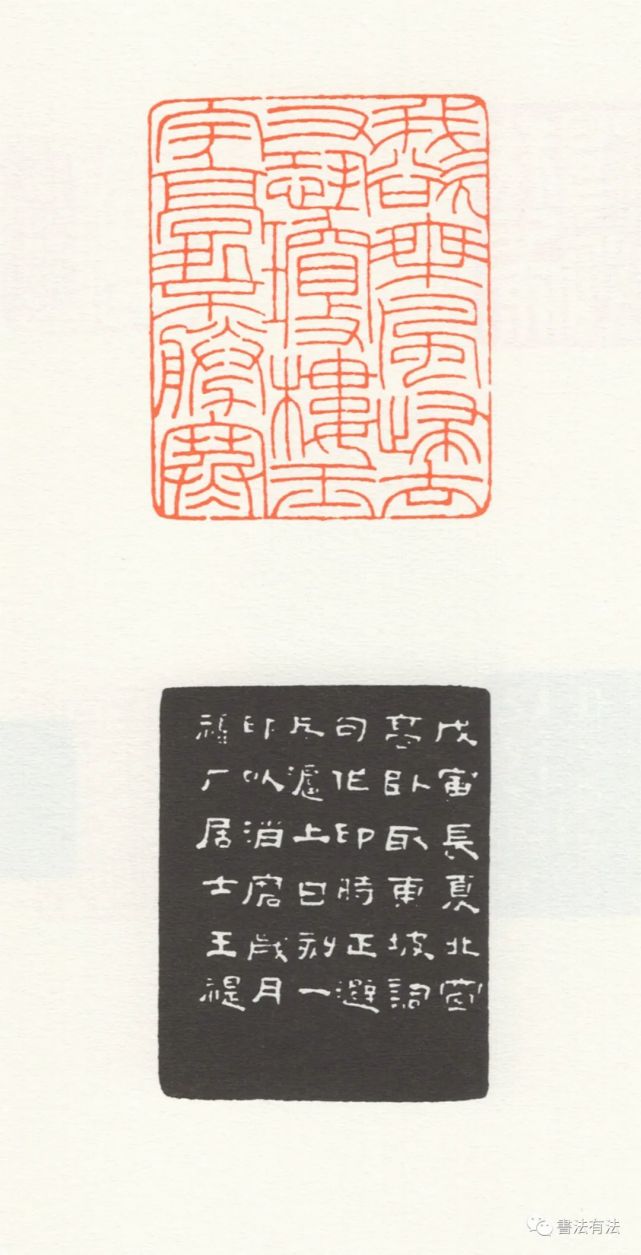 我欲乘風歸去
又恐瓊樓玉
宇高處不勝寒
戊寅長夏北窗
高臥取東坡詞
句作印時正避
兵滬上日刻一
印以消磨歲月
福厂居士王禔
書法有法